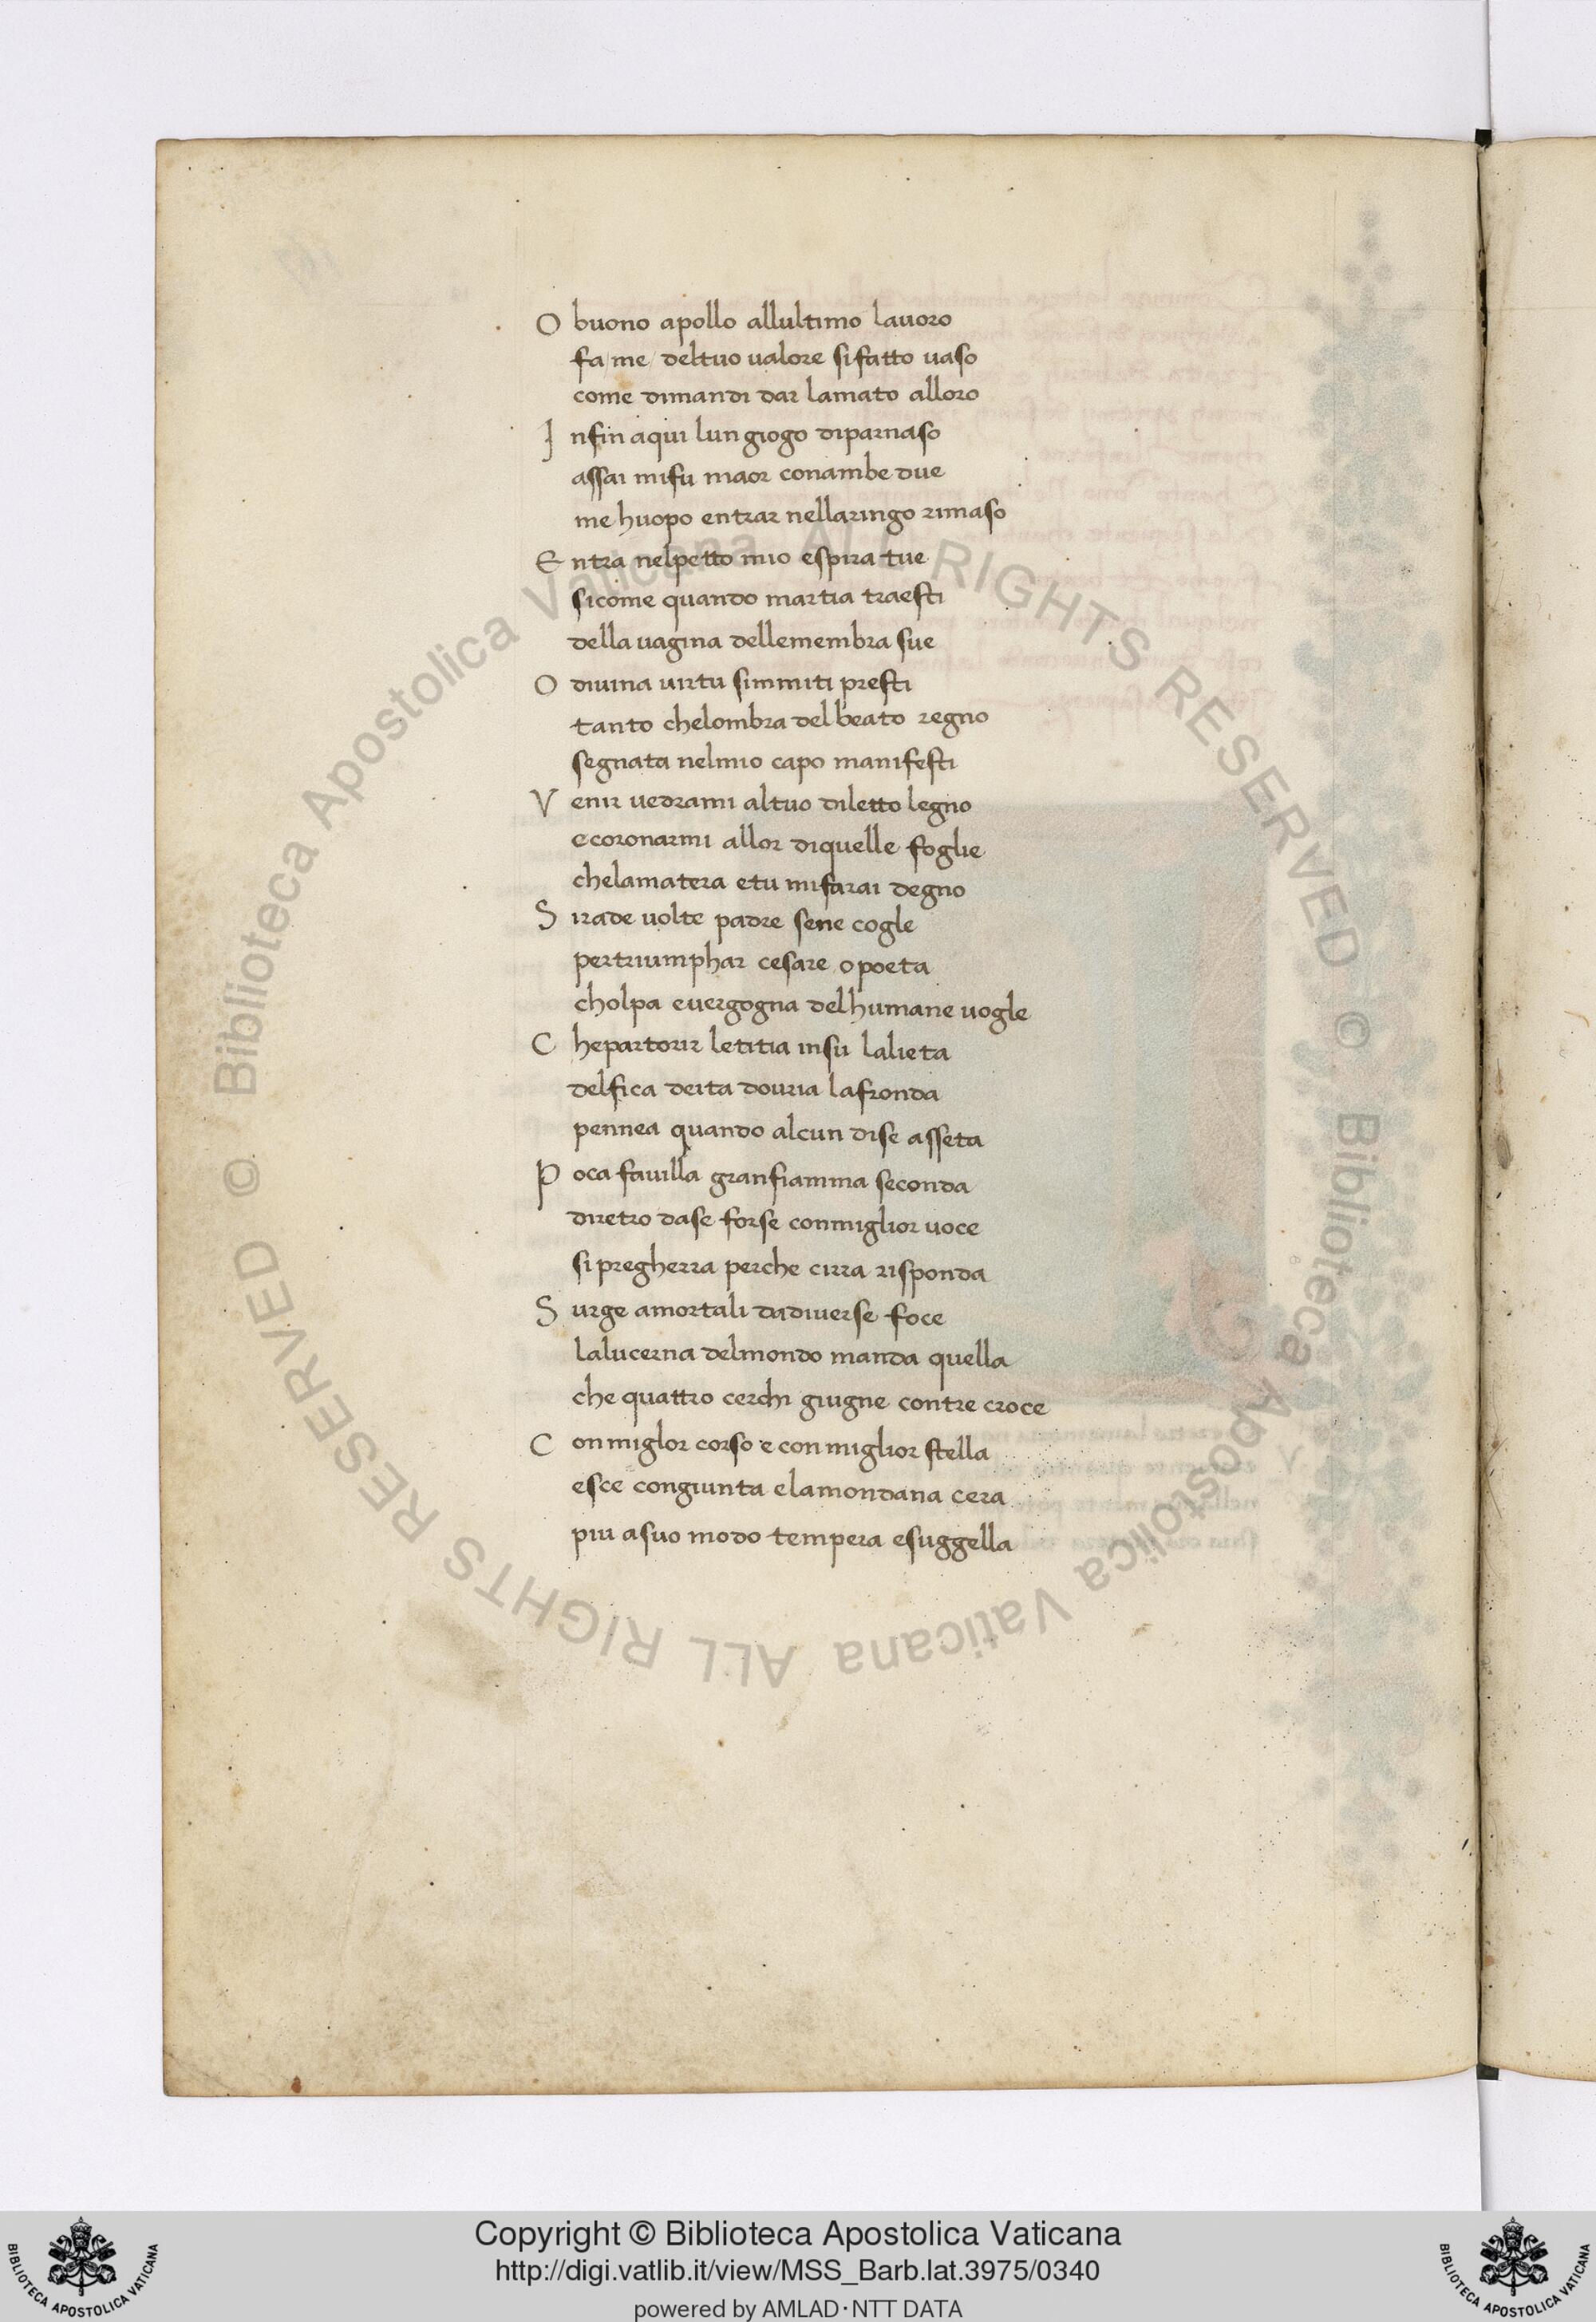 O buono apollo allultimo lauoro
fa me deltuo ualore sifatto uaso
come dimandi dar lamato alloro
J nfin aqui lun giogo diparnaso
assai mifu maor conambe due
me huopo entrar nellaringo rimaso
E ntra nelpetto mio espira tue
sicome quando martia traesti
della uagina dellemembra sue
O diuina uirtu simmiti presti
tanto chelombra del beato regno
segnata nelmio capo manifesti
V enir uedrami altuo diletto legno
ecoronarmi allor diquelle foglie
chelamatera etu mifarai degno
S irade uolte padre sene cogle
pertriumphar cesare o poeta
cholpa euergogna delhumane uogle
C hepartorir letitia insu lalieta
delfica deita douria lafronda
pennea quando alcun dise asseta
P oca fauilla granfiamma seconda
diretro dase forse conmiglior uoce
si pregherra perche cirra risponda
S urge amortali dadiuerse foce
lalucerna delmondo manda quella
che quattro cerchi giugne contre croce
C on miglor corso e con miglior stella
esce congiunta elamondana cera
piu asuo modo tempera esuggella
Biblioteca Apostolica Vaticana ALL RIGHTS RESERVED ©
Biblioteca Apostolica Vaticana ALL RIGHTS RESERVED ©
BIBLIOTECA APOSTOLICA VATICANA
Copyright © Biblioteca Apostolica Vaticana
http://digi.vatlib.it/view/MSS_Barb.lat.3975/0340
powered by AMLAD·NTT DATA
BIBLIOTECA APOSTOLICA VATICANA